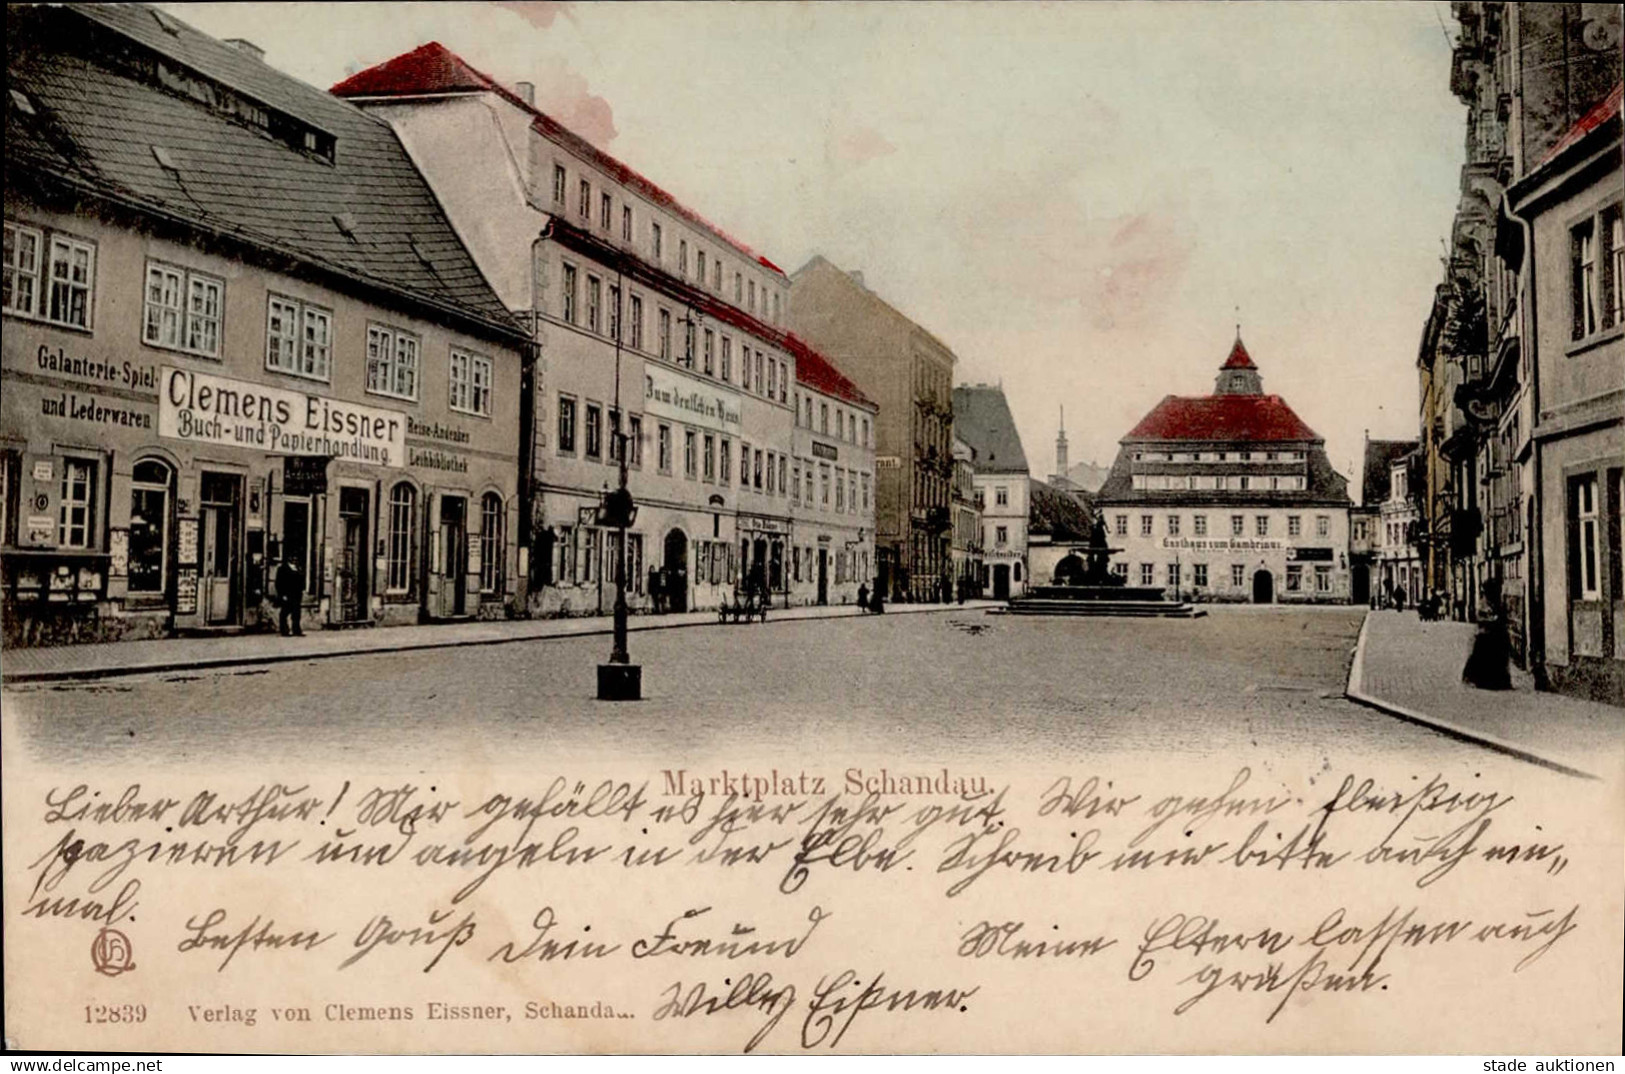 Galanterie-Spiel-
und Lederwaren
Clemens Eissner
Buch- und Papierhandlung.
Reise-Andenken
Leihbibliothek
Zum deutschen Haus
Gasthaus zum Gambrinus
Marktplatz Schandau.
Lieber Arthur! Mir gefällt es hier sehr gut. Wir gehen fleißig
spazieren und angeln in der Elbe. Schreib mir bitte auch ein„
mal.
Besten Gruß Dein Freund
Willy Eißner.
Meine Eltern lassen auch
grüßen.
12839 Verlag von Clemens Eissner, Schandau.
delcampe.net
stade auktionen